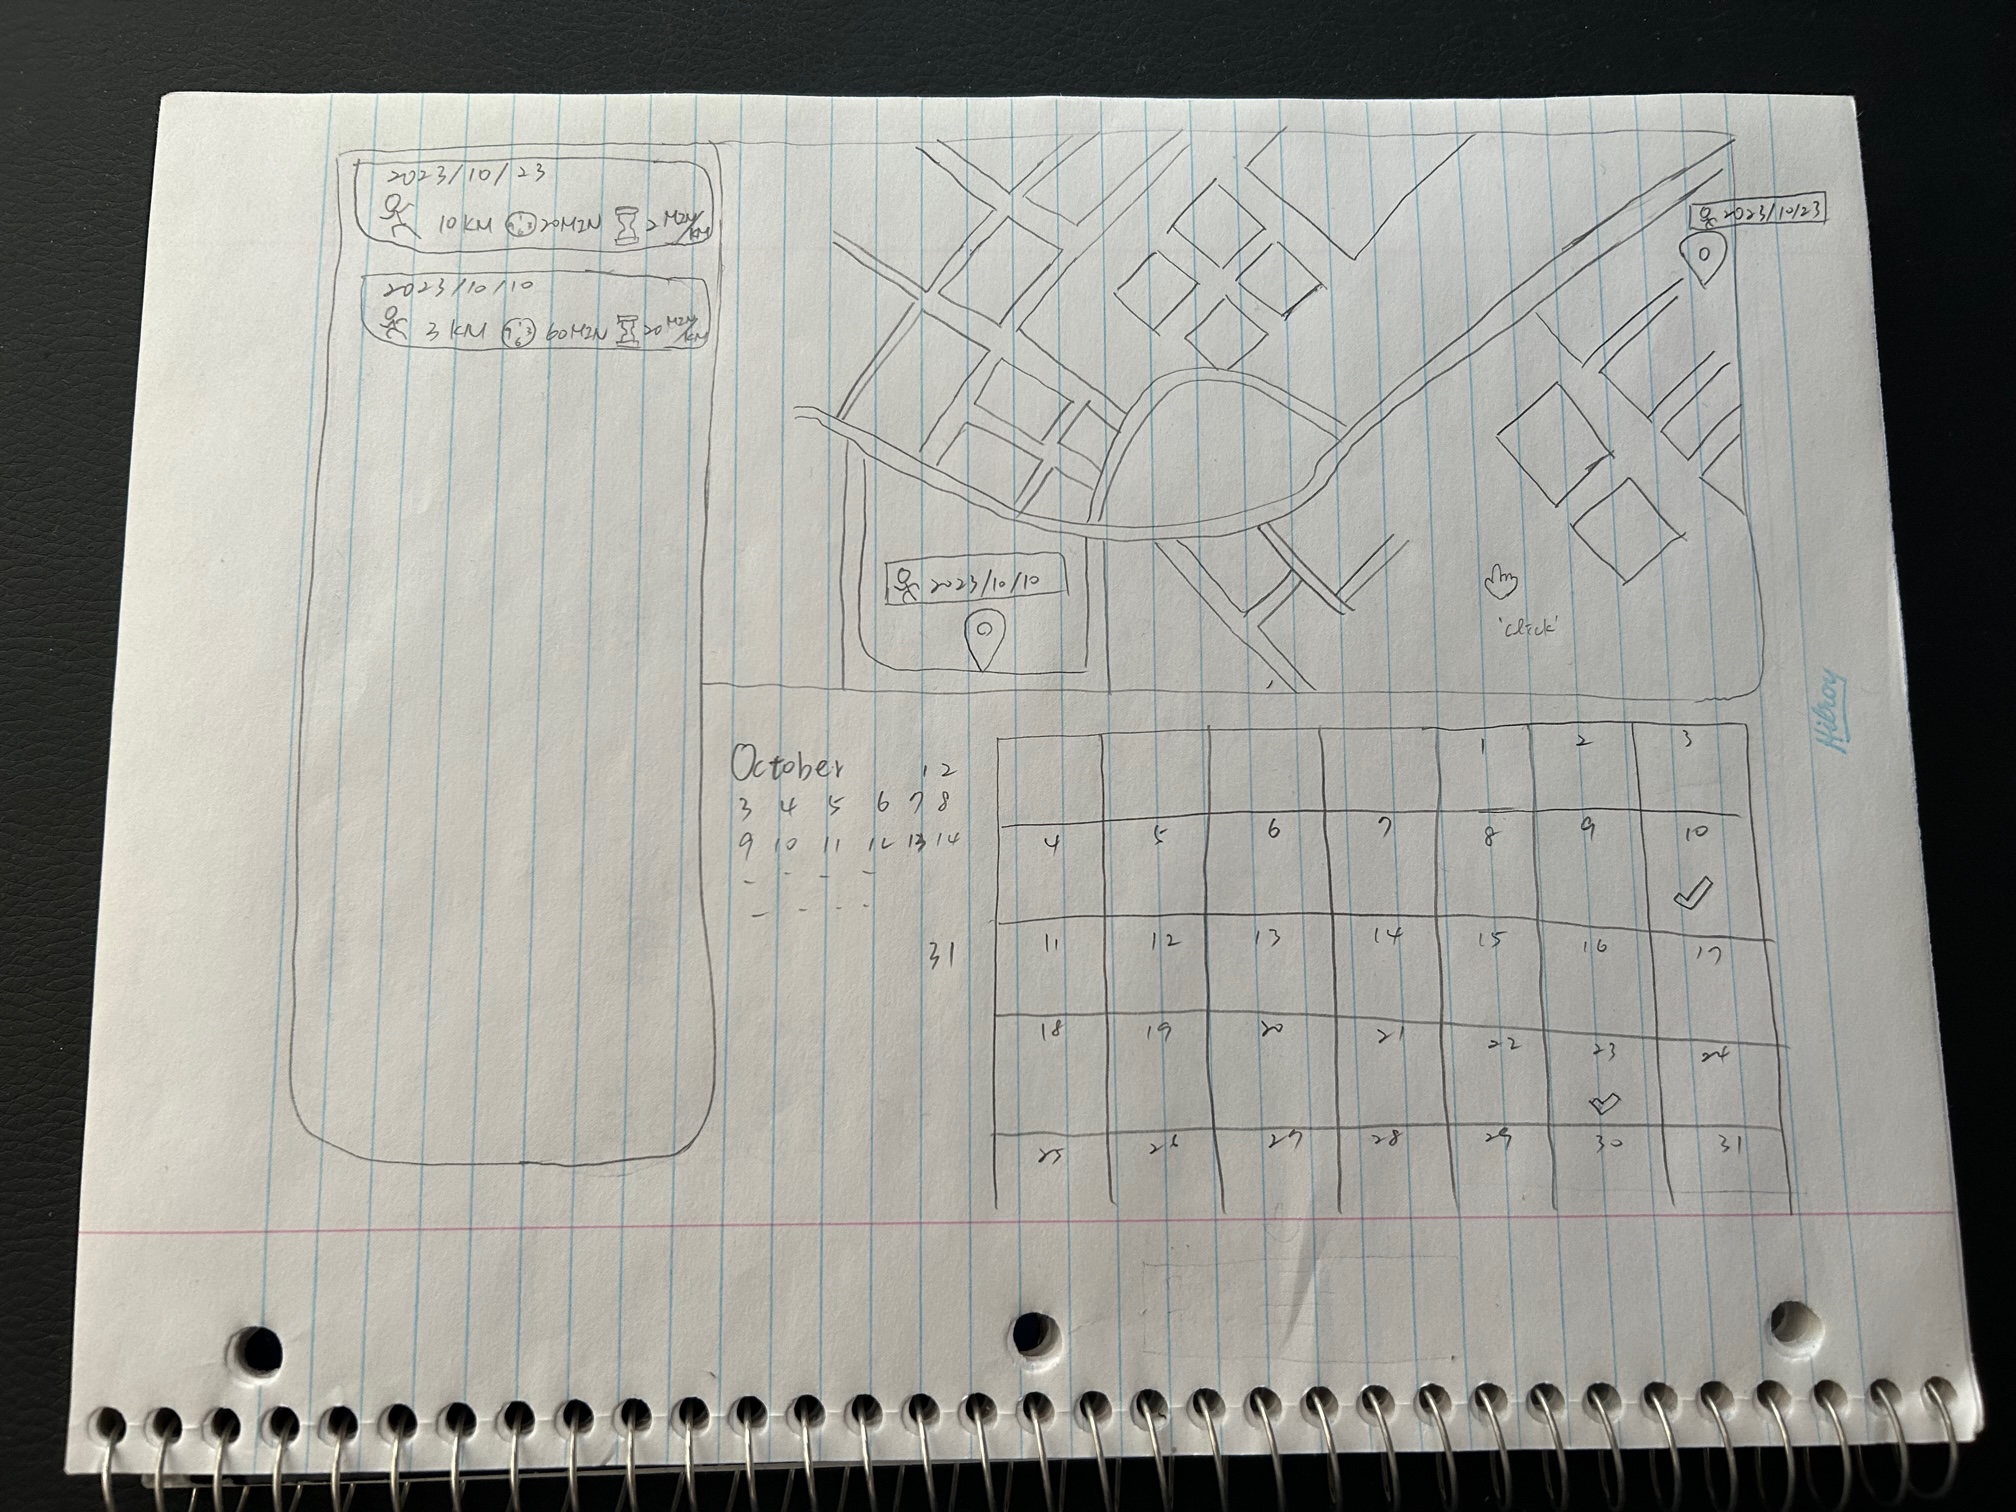 2023/10/23
10 KM 20MIN 2 MIN/KM
2023/10/10
3 KM 60MIN 20 MIN/KM
2023/10/23
2023/10/10
'click'
Hilroy
October 1 2
3 4 5 6 7 8
9 10 11 12 13 14
31
1 2 3
4 5 6 7 8 9 10
11 12 13 14 15 16 17
18 19 20 21 22 23 24
25 26 27 28 29 30 31